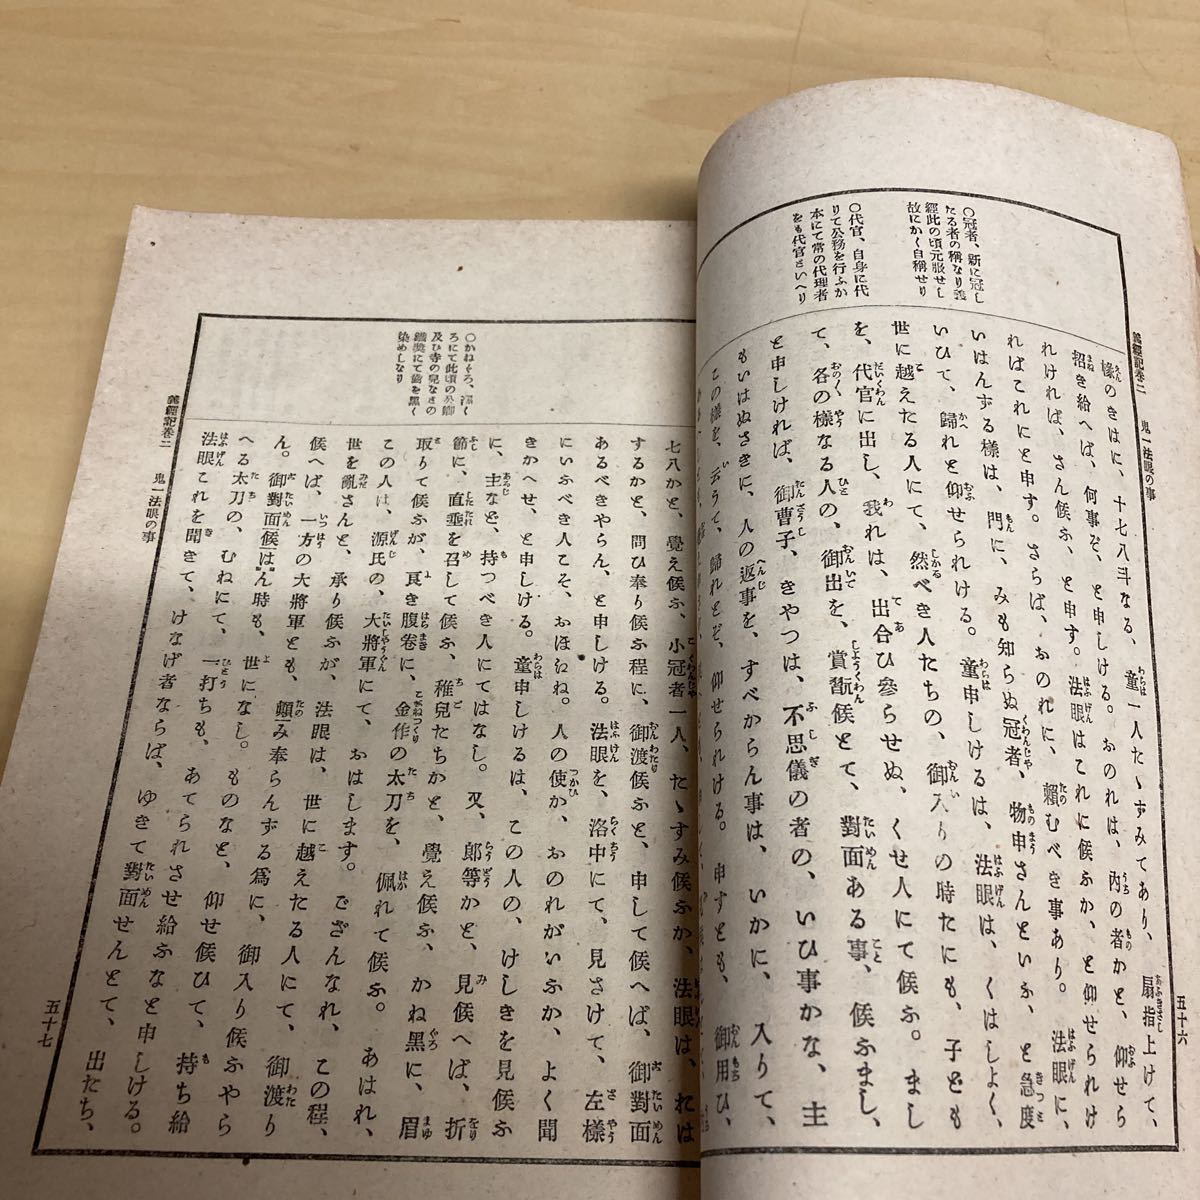 義經記卷二　鬼一法眼の事
五十六
〇冠者、新に冠し
たる者の稱なり義
經此の頃元服せし
故にかく自稱せり
〇代官、自身に代
りて公務を行ふか
本にて常の代理者
をも代官さいへり
椽のきはに、十七八斗なる、童一人たゝずみてあり、扇指上けて、
招き給へば、何事ぞ、と申しける。おのれは、內の者かと、仰せら
れければ、さん候ふ、と申す。法眼はこれに候か、と仰せられけ
ればこれにと申す。さらば、おのれに、賴むべき事あり。法眼に、
いはんずる樣は、門に、みも知らぬ冠者、物申さんといふ、と急度
いひて、歸れと仰せられける。童申しけるは、法眼は、くはしよく、
世に越えたる人にて、然べき人たちの、御入りの時たにも、子ども
を、代官に出し、我れは、出合ひ參らせぬ、くせ人にて候ふ。まし
て、各の樣なる人の、御出を、賞翫候とて、對面ある事、候ふまし、
と申しければ、御曹子、きやつは、不思儀の者の、いひ事かな、主
もいはぬさきに、人の返事を、すべからん事は、いかに、入りて、
この樣を、云うて、歸れとぞ、仰せられける。申すとも、御用ひ、
〇かねくろ、
ろにて此頃の公卿
及ひ寺の兒なさの
鐵奬にて齒を黑く
染めしなり
七八かと、覺え候ふ、小冠者一人、たゝすみ候ふか、法眼は、れは
するかと、問ひ奉り候ふ程に、御渡候ふと、申して候へば、御對面
あるべきやらん、と申しける。法眼を、洛中にて、見さけて、左樣
にいふべき人こそ、おほはね。人の使か、おのれがいふか、よく聞
きかへせ、と申しける。童申しけるは、この人の、けしきを見候ふ
に、主なと、持つべき人にてはなし。又、郞等かと、見候へば、折
節に、直垂を召して候ふ、稚兒たちかと、覺え候ふ、かね黑に、眉
取りて候ふが、良き腹卷に、金作の太刀を、佩れて候ふ。あはれ、
この人は、源氏の、大將軍にて、おはします。ござんなれ、この程、
世を亂さんと、承り候ふが、法眼は、世に越えたる人にて、御渡り
候へば、一方の大將軍とも、賴み奉らんずる爲に、御入り候ふやら
ん。御對面候はん時も、世になし。ものなと、仰せ候ひて、持ち給
へる太刀の、むねにて、一打ちも、あてられさせ給ふなと申しける。
法眼これを聞きて、けなげ者ならば、ゆきて對面せんとて、出たち、
義經記卷二　鬼一法眼の事
五十七